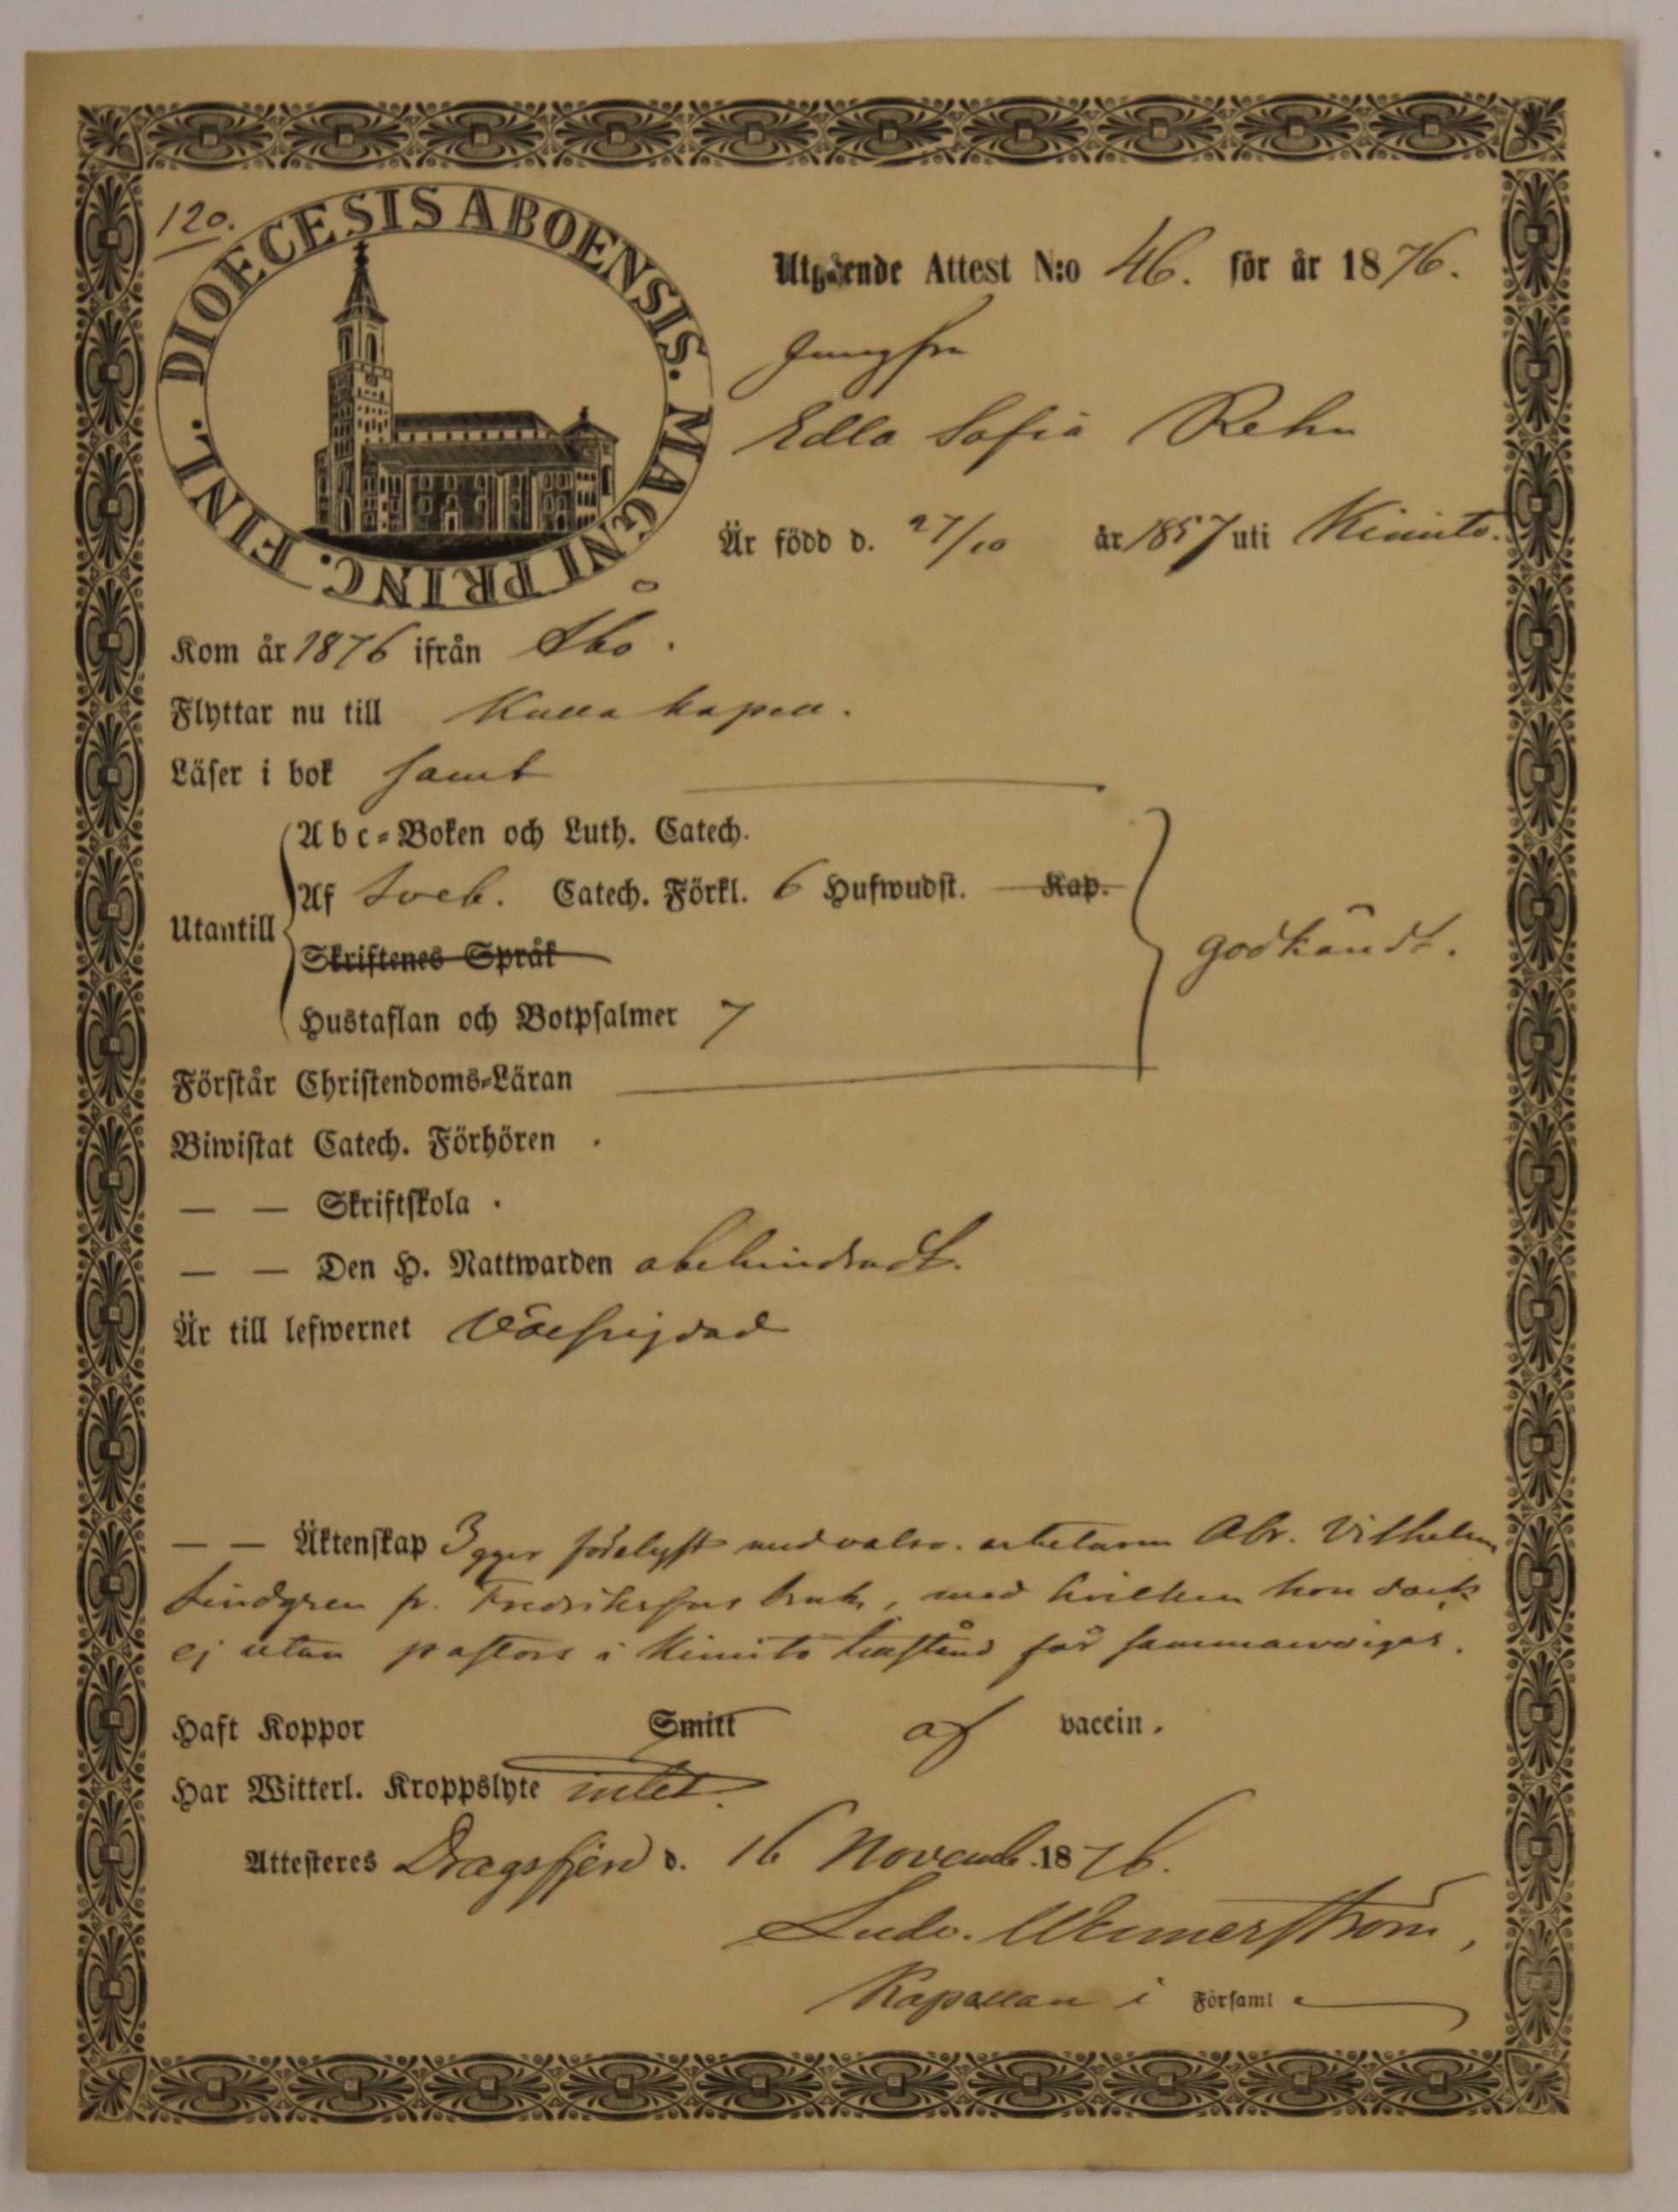 120.
DIOECESIS ABOENSIS. MAGNI PRINC. FINL.
Utgående Attest N:o 46. för år 1876.
Jungfru
Edla Sofia Rehn
Är född d. 27/10 år 1857 uti Kimito.
Kom år 1876 ifrån Åbo.
Flyttar nu till Kulla kapell.
Läser i bok samt
Abc-Boken och Luth. Catech.
Utantill Af Sveb. Catech. Förkl. 6 Hufwudst. Kap.
godkändt.
Skriftenes Språk
Hustaflan och Botpsalmer 7
Förstår Christendoms-Läran
Biwistat Catech. Förhören .
— — Skriftskola .
— — Den H. Nattwarden obehindradt.
Är till lefwernet välfrejdad
— — Äktenskap 3 ggr förelyst med arbetaren Abr. Vilhelm
Lindgren fr. Fredriksfors bruk, med hvilken hon dock
ej utan pastors i Kimito får sammanvigas.
Haft Koppor Smitt af vaccin.
Har Witterl. Kroppslyte intet.
Attesteres Dragsfjerd d. 16 Novemb. 1876.
Ludv. Wennerström,
Kapellan i Församl